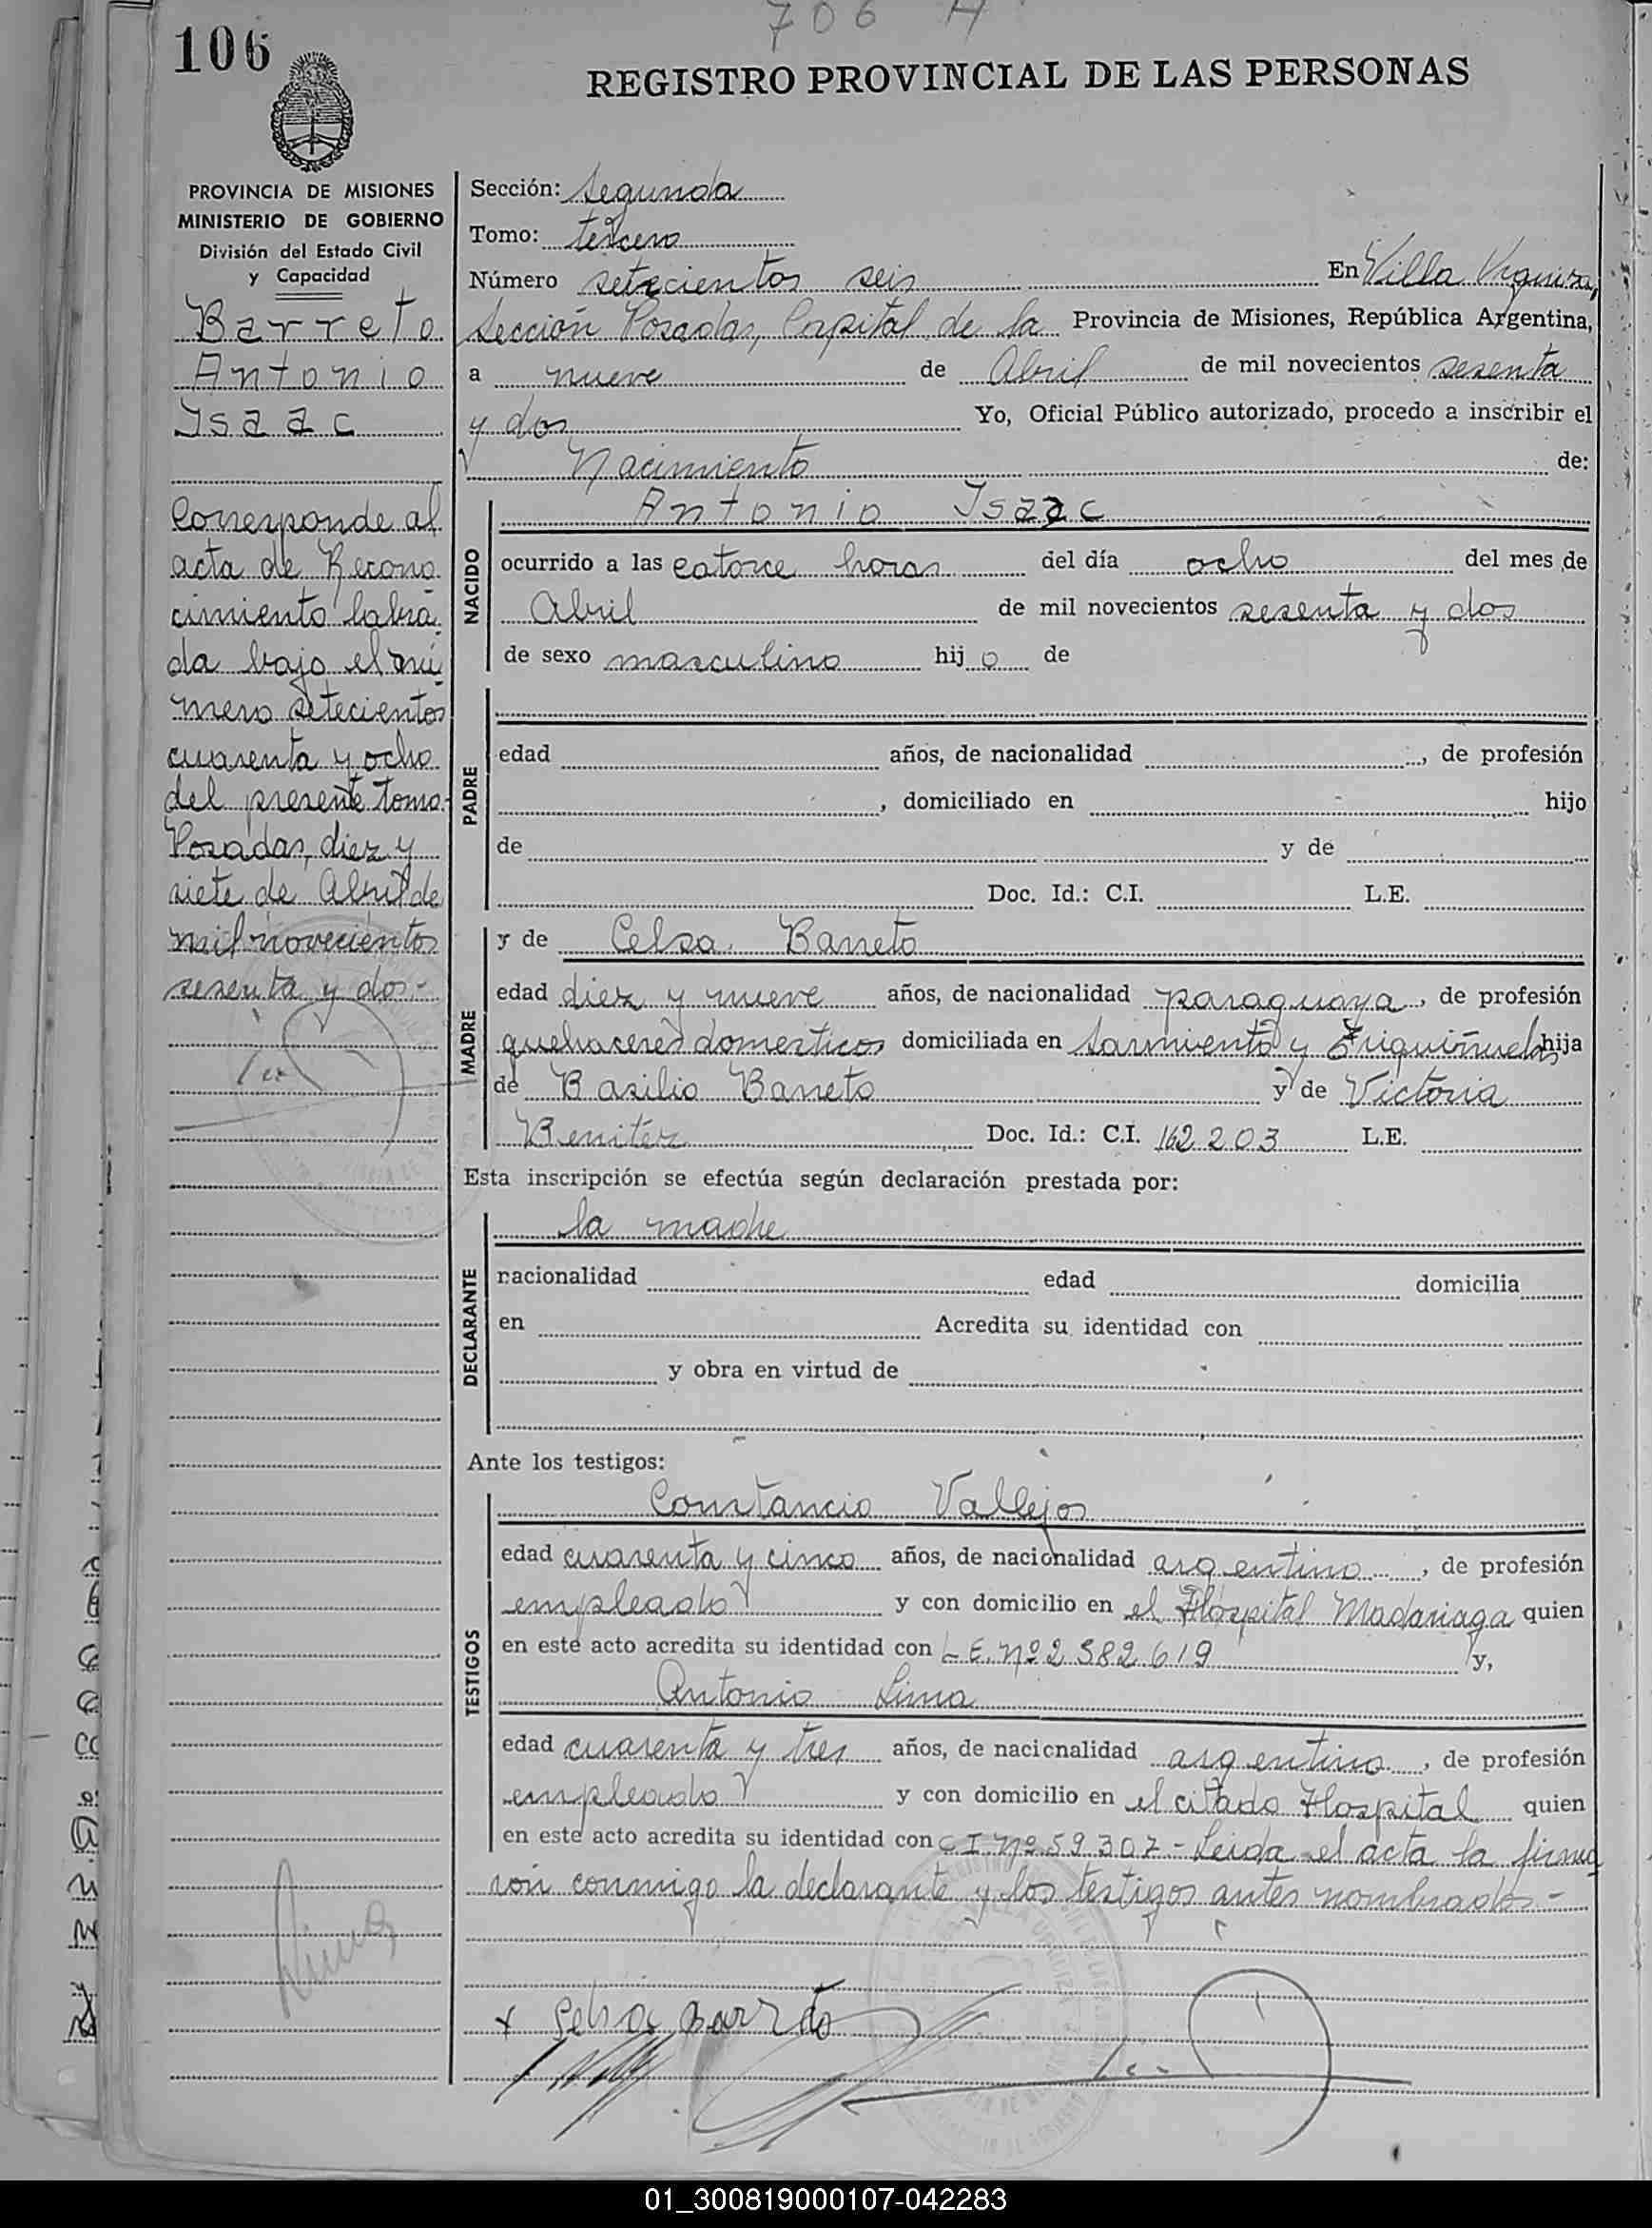 706 A
106
REGISTRO PROVINCIAL DE LAS PERSONAS
PROVINCIA DE MISIONES
MINISTERIO DE GOBIERNO
División del Estado Civil
y Capacidad
Barreto
Antonio
Isaac
Corresponde al
acta de Recono
cimiento labra
da bajo el nú
mero setecientos
cuarenta y ocho
del presente tomo.
Posadas, diez y
siete de Abril de
mil novecientos
sesenta y dos.-
Sección: Segunda
Tomo: tercero
Número setecientos seis En Villa Urquiza,
Sección Posadas, Capital de la Provincia de Misiones, República Argentina,
a nueve de Abril de mil novecientos sesenta
y dos Yo, Oficial Público autorizado, procedo a inscribir el
Nacimiento de:
NACIDO
Antonio Isaac
ocurrido a las catorce horas del día ocho del mes de
Abril de mil novecientos sesenta y dos
de sexo masculino hijo de
PADRE
edad años, de nacionalidad , de profesión
, domiciliado en hijo
de y de
Doc. Id.: C.I. L.E.
MADRE
y de Celsa Barreto
edad diez y nueve años, de nacionalidad paraguaya, de profesión
quehaceres domesticos domiciliada en Sarmiento y hija
de Basilio Barreto y de Victoria
Benitez Doc. Id.: C.I. 162.203 L.E.
Esta inscripción se efectúa según declaración prestada por:
DECLARANTE
la madre
nacionalidad edad domicilia
en Acredita su identidad con
y obra en virtud de
Ante los testigos:
TESTIGOS
Constancio Vallejos
edad cuarenta y cinco años, de nacionalidad argentino, de profesión
empleado y con domicilio en el Hospital Madariaga quien
en este acto acredita su identidad con L.E. nº 2.582.619 y,
Antonio Lima
edad cuarenta y tres años, de nacionalidad argentino, de profesión
empleado y con domicilio en el citado Hospital quien
en este acto acredita su identidad con C I nº 59.307 - Leida el acta la firma
ron conmigo la declarante y los testigos antes nombrados.-
x Celsa Barreto
01_300819000107-042283